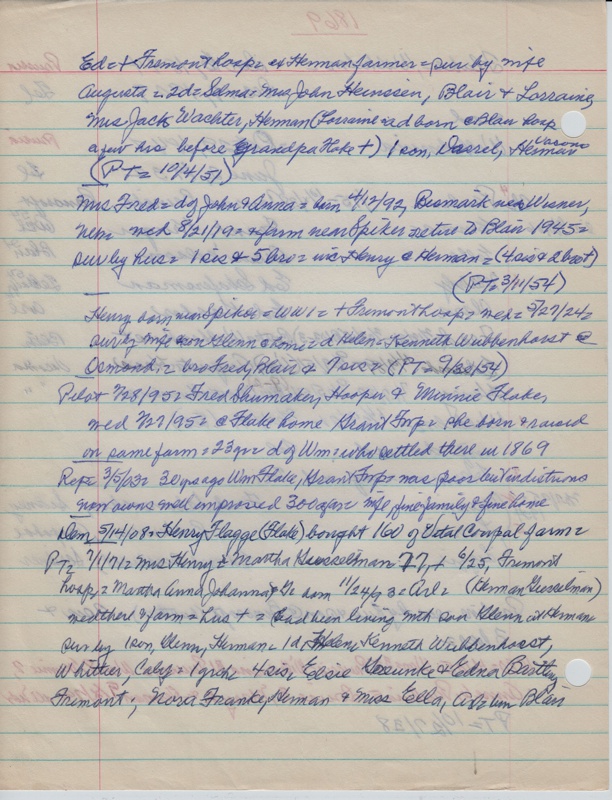 1869
Ed = + Fremont hosp = ex Herman farmer = sur by wife
Augusta = 2d = Selma = Mrs John Heinssen, Blair & Lorraine
Mrs Jack Wachter, Herman (Lorraine ad born @ Blair hosp
a few hrs before Grandpa Flake +) 1 son, Darrel, Herman
(PT = 10/4/51)
Mrs Fred = d of John & Anna = born 4/12/92, Bismark near Wisner,
Neb = wed 5/21/19 = farm near Spiker retire to Blair 1945 =
sur by hus = 1 sis & 5 bro = inc Henry & Herman = (4 sis & 2 bro +)
(PT = 3/11/54)
Henry born near Spiker = WW1 = + Fremont hosp = wed = 5/27/24 =
sur by wife = son Glenn @ home = d Helen = Kenneth Wubbenhorst @
Osmond = bro Fred, Blair & 7 sis = (PT = 9/30/54)
Pilot 7/28/95 = Fred Shumaker, Hooper & Minnie Flake,
wed 7/27/95 = @ Flake home Grant Twp = she born & raised
on same farm = 23 yr = d of Wm = who settled there in 1869
Rep = 3/5/03 = 30 yrs ago Wm Flake, Grant Twp = was poor but industrious
now owns well improved 300 a farm = wife, fine family & fine home
Dem 5/14/08 = Henry Flagge (Flake) bought 160 of Vital Coupal farm =
PT = 7/1/71 = Mrs Henry = Martha Giesselman 77, + 6/25, Fremont
hosp = Martha Anna Johanna G = born 11/24/93 = Arl = (Herman Giesselman)
wed there & farm = hus + = had been living with son Glenn at Herman
sur by 1 son, Glenn, Herman = 1 d, Helen, Kenneth Wubbenhorst,
Whittier, Calif = 1 grch = 4 sis, Elsie & Edna
Fremont; Nora Franke, Herman & Miss Ella, Blair